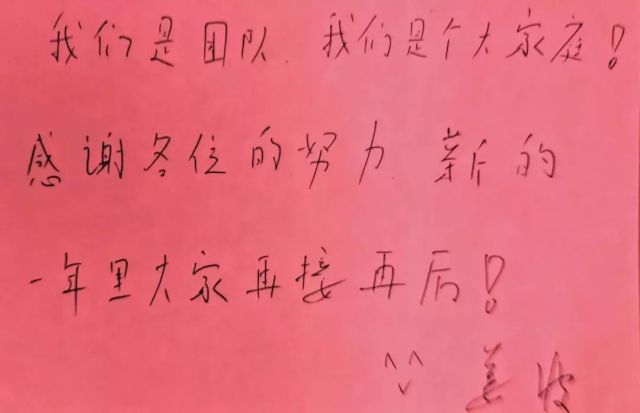 我们是团队 我们是个大家庭！
感谢各位的努力 新的
一年里大家再接再后！
^^ 姜波